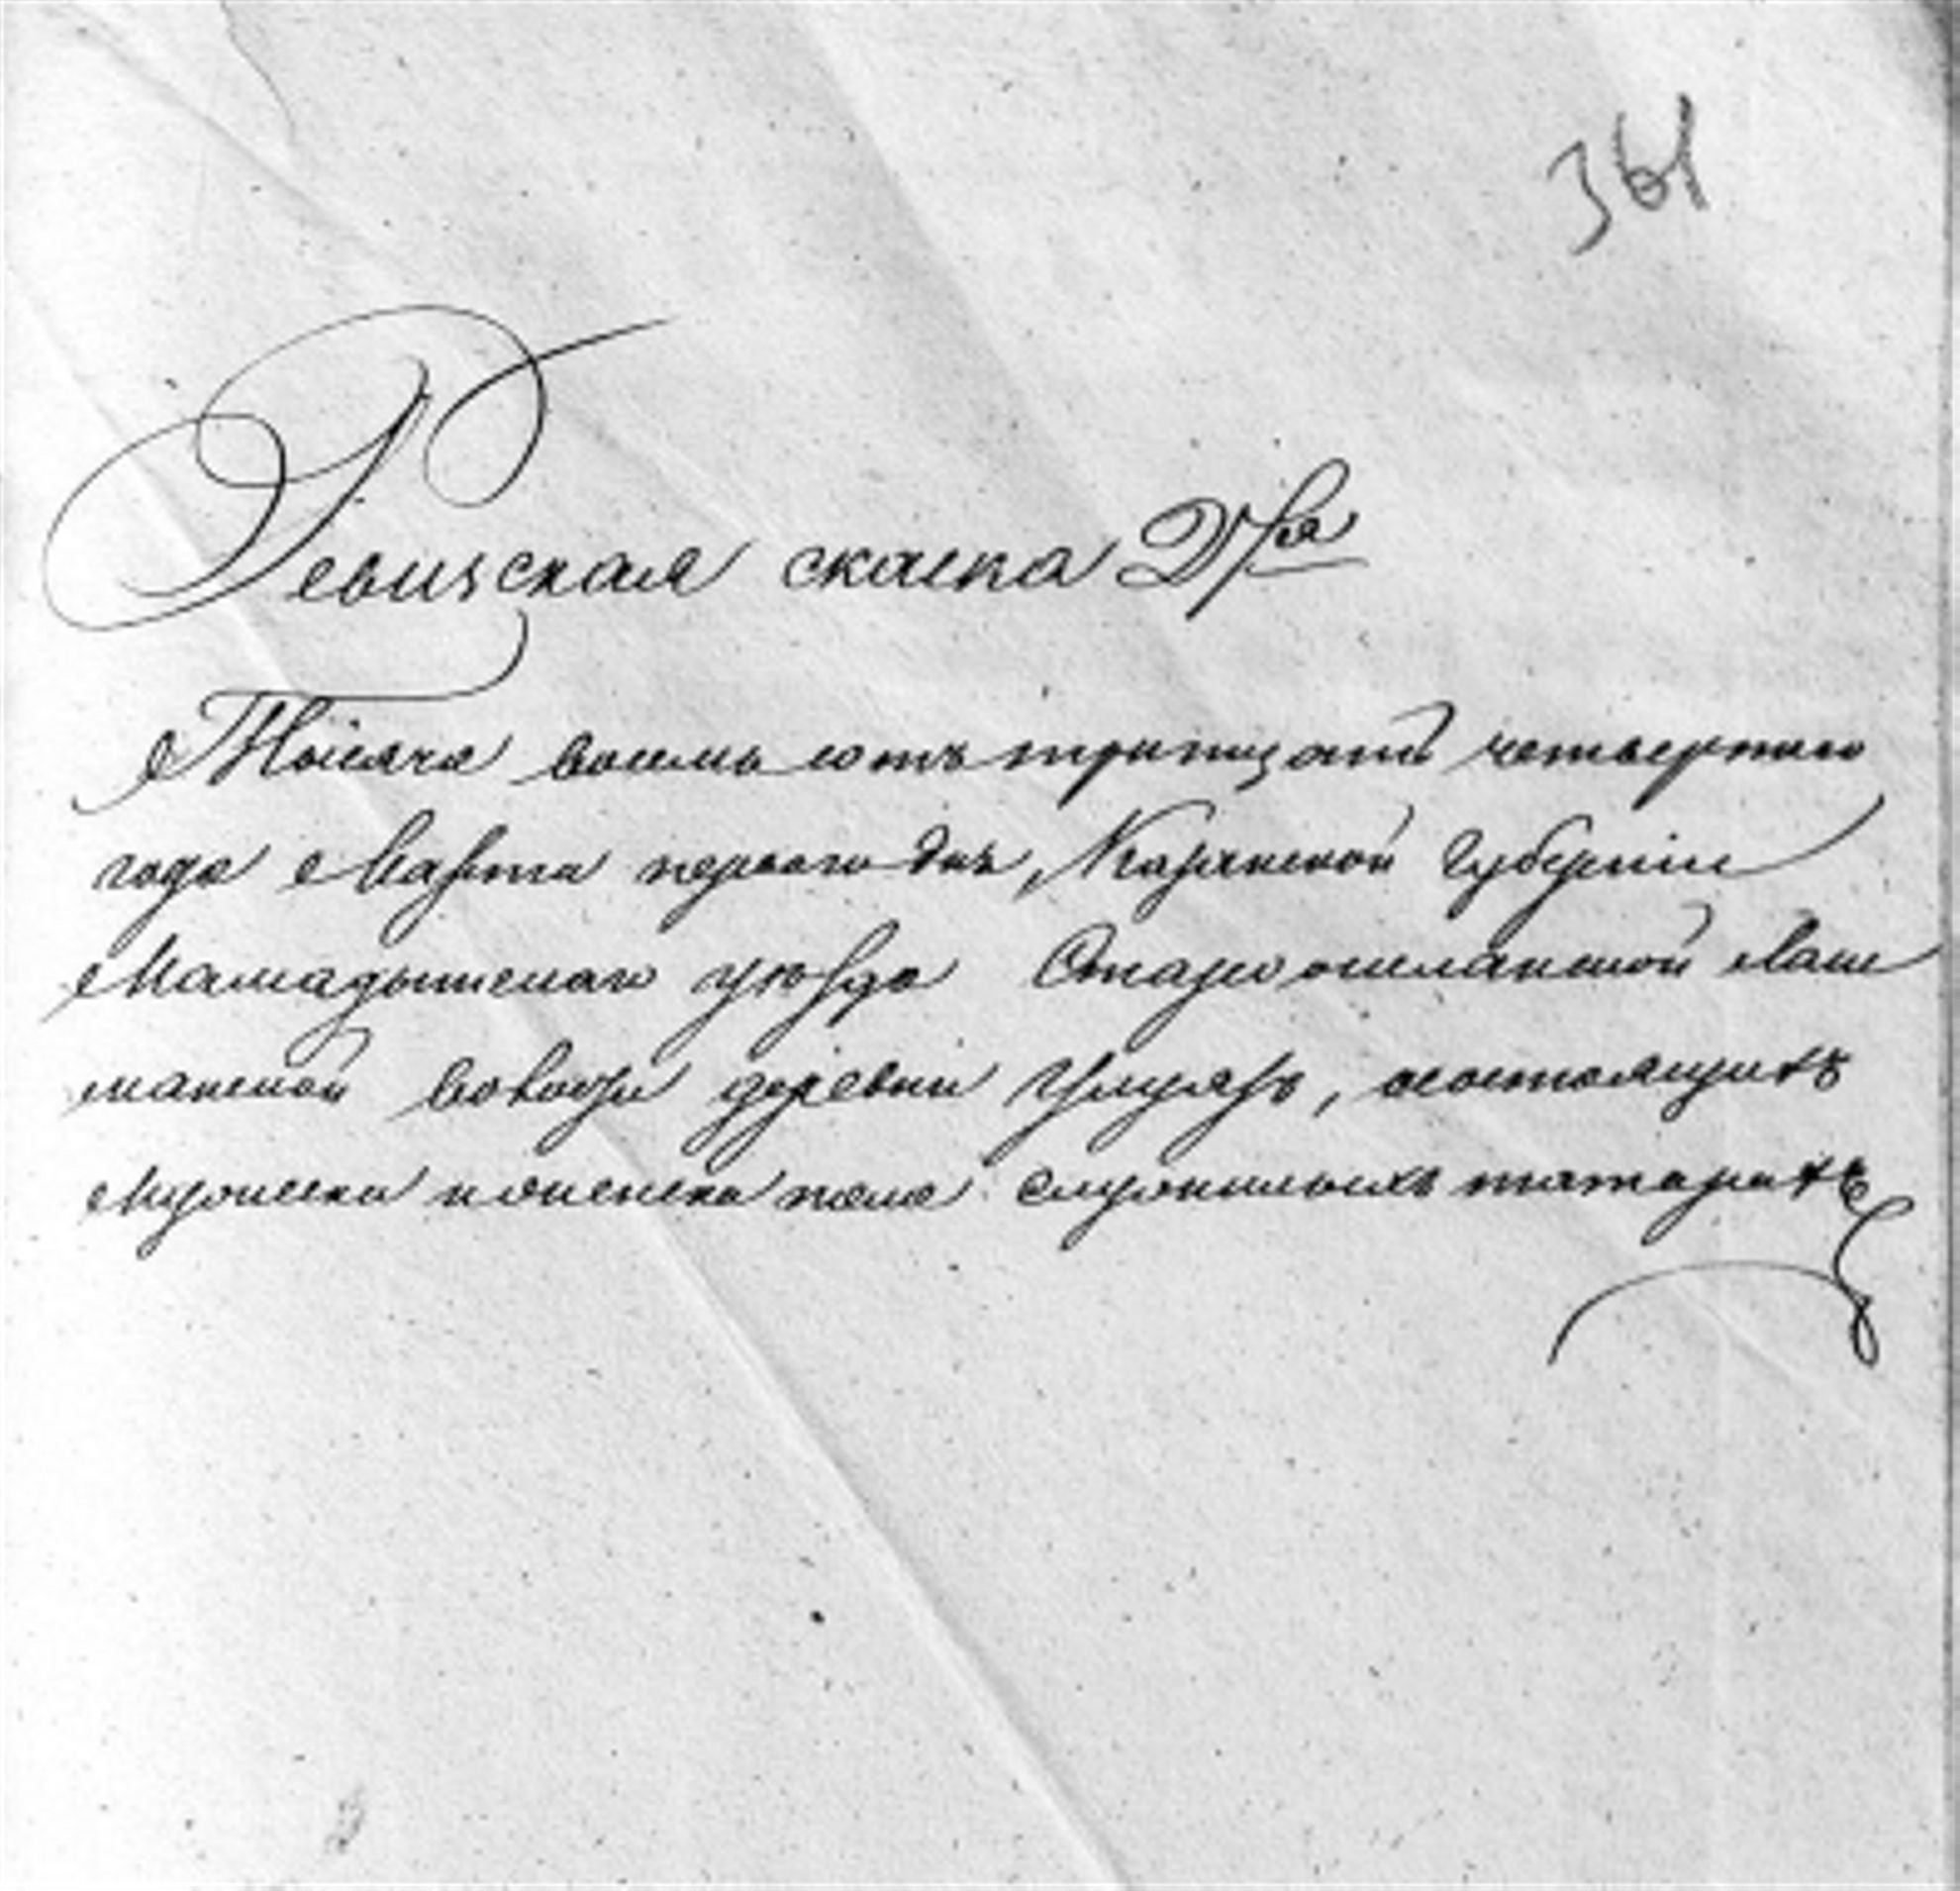 361
Ревизская скаска Д/ля
Тысяча восемь сотъ тритцать четвертаго
года Марта перваго дня, Казанской Губернии
Мамадышскаго уюзда Староошланской Лаш
манской волости деревни Улуязъ, состоящихъ
Мужеска и женска пола служилыхъ татарахъ